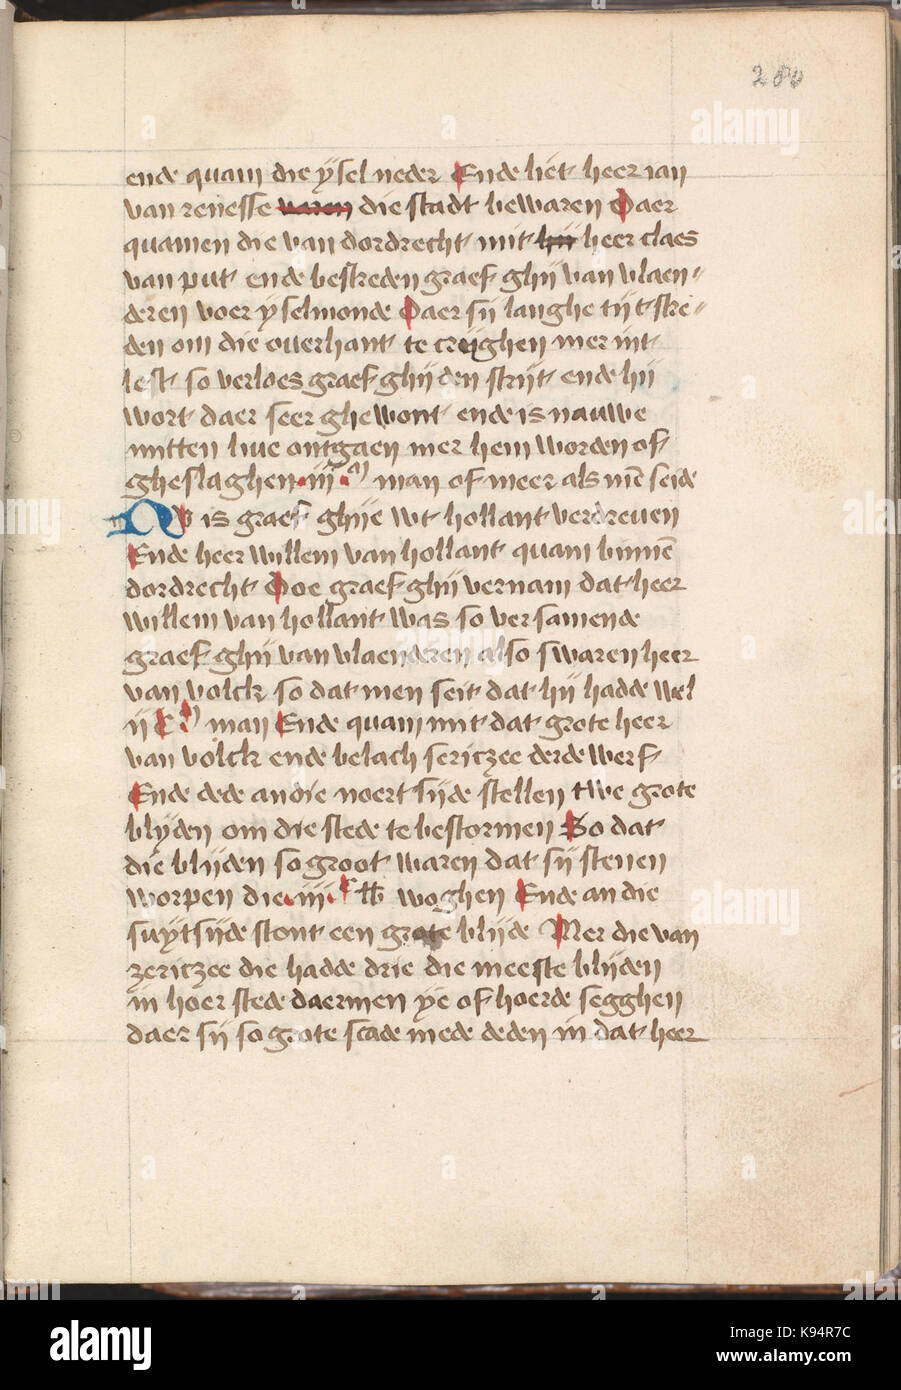 280
ende quam die ysel neder Ende liet heer ian
van renesse waren die stadt bewaren Daer
quamen die van dordrecht mit hij heer claes
van put ende bestreden graef ghij van vlaen=
deren voer yselmonde Daer sij langhe tijt stre=
den om die overhant te crijghen mer int
lest so verloes graef ghij den strijt ende hij
wort daer seer ghewont ende is nauwe
mitten live ontgaen mer hem worden of
gheslaghen .iij.m man of meer als mē seide
Nv is graef ghije wt hollant verdreven
Ende heer willem van hollant quam binnē
dordrecht Doe graef ghij vernam dat heer
willem van hollant was so versamende
graef ghij van vlaenderen also swaren heer
van volck so dat men seit dat hij hadde wel
ij C m man Ende quam mit dat grote heer
van volck ende belach sericzee derde werf
Ende dede an die noert sijde stellen twe grote
blijden om die stede te bestormen So dat
die blijden so groot waren dat sij stenen
worpen die .iij.c lb woghen Ende an die
suytsijde stont een grote blijde Mer die van
zericzee die hadde drie die meeste blijden
in hoer stede daermen ye of hoerde segghen
daer sij so grote scade mede deden in dat heer
alamy
alamy
K94R7C
www.alamy.com